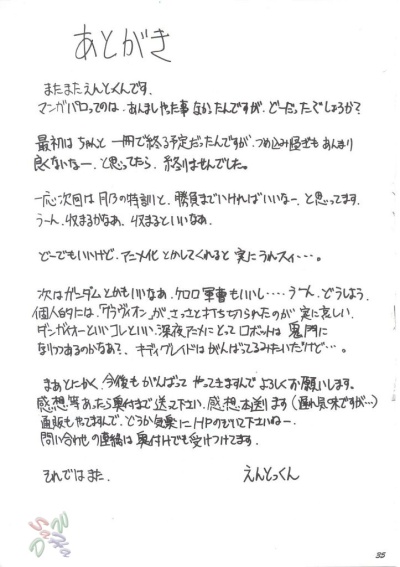 あとがき
またまたえんとっくんです.
マンガパロってのは、あんましやった事なかったんですが、どーだったでしょうか?
最初はちゃんと一冊で終る予定だったんですが、つめ込み過ぎもあんまり
良くないなー、と思ってたら、終りませんでした。
一応次回は月乃の特訓と、勝負まていければいいなー、と思ってます.
うーん、収まるかなあ、収まるといいなあ.
どーでもいいけど、アニメ化とかしてくれると実にうれスィ…。
次はガンダムとかもいいなあ、ケロロ軍曹もいいし…. うーん、どうしよう.
個人的には、「グラヴィオン」が、さっさと打ち切られたのが実に哀しい.
ダンガイオーといいコレといい、深夜アニメにとってロボットは鬼門に
なりつつあるのかなあ?、キディグレイドはがんばってるみたいだけど…。
まあとにかく、今後もがんばってやってきますんでよろしくお願いします。
感想等あったら奥付まで送って下さい. 感想本送ります(遅れ気味ですが…)
通販もやってますんで、どうか気楽にHPのぞいて下さいねー
問い合わせの連絡は奥付けでも受けつけてます.
それではまた. えんとっくん
35